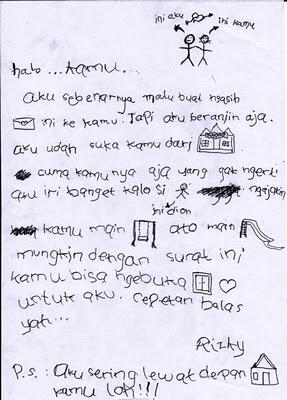 ini aku ini kamu
halo ... kamu ...
aku sebenarnya malu buat ngasih
ini ke kamu. Tapi aku beranjin aja.
aku udah suka kamu dari
cuma kamunya aja yang gak ngerti
aku iri banget kalo si ngajakin
ini dion
kamu main ato main
mungkin dengan surat ini
kamu bisa ngebuka
untuk aku. cepetan balas
yah...
Rizky
P.s. : Aku sering lewat depan
kamu loh!!!